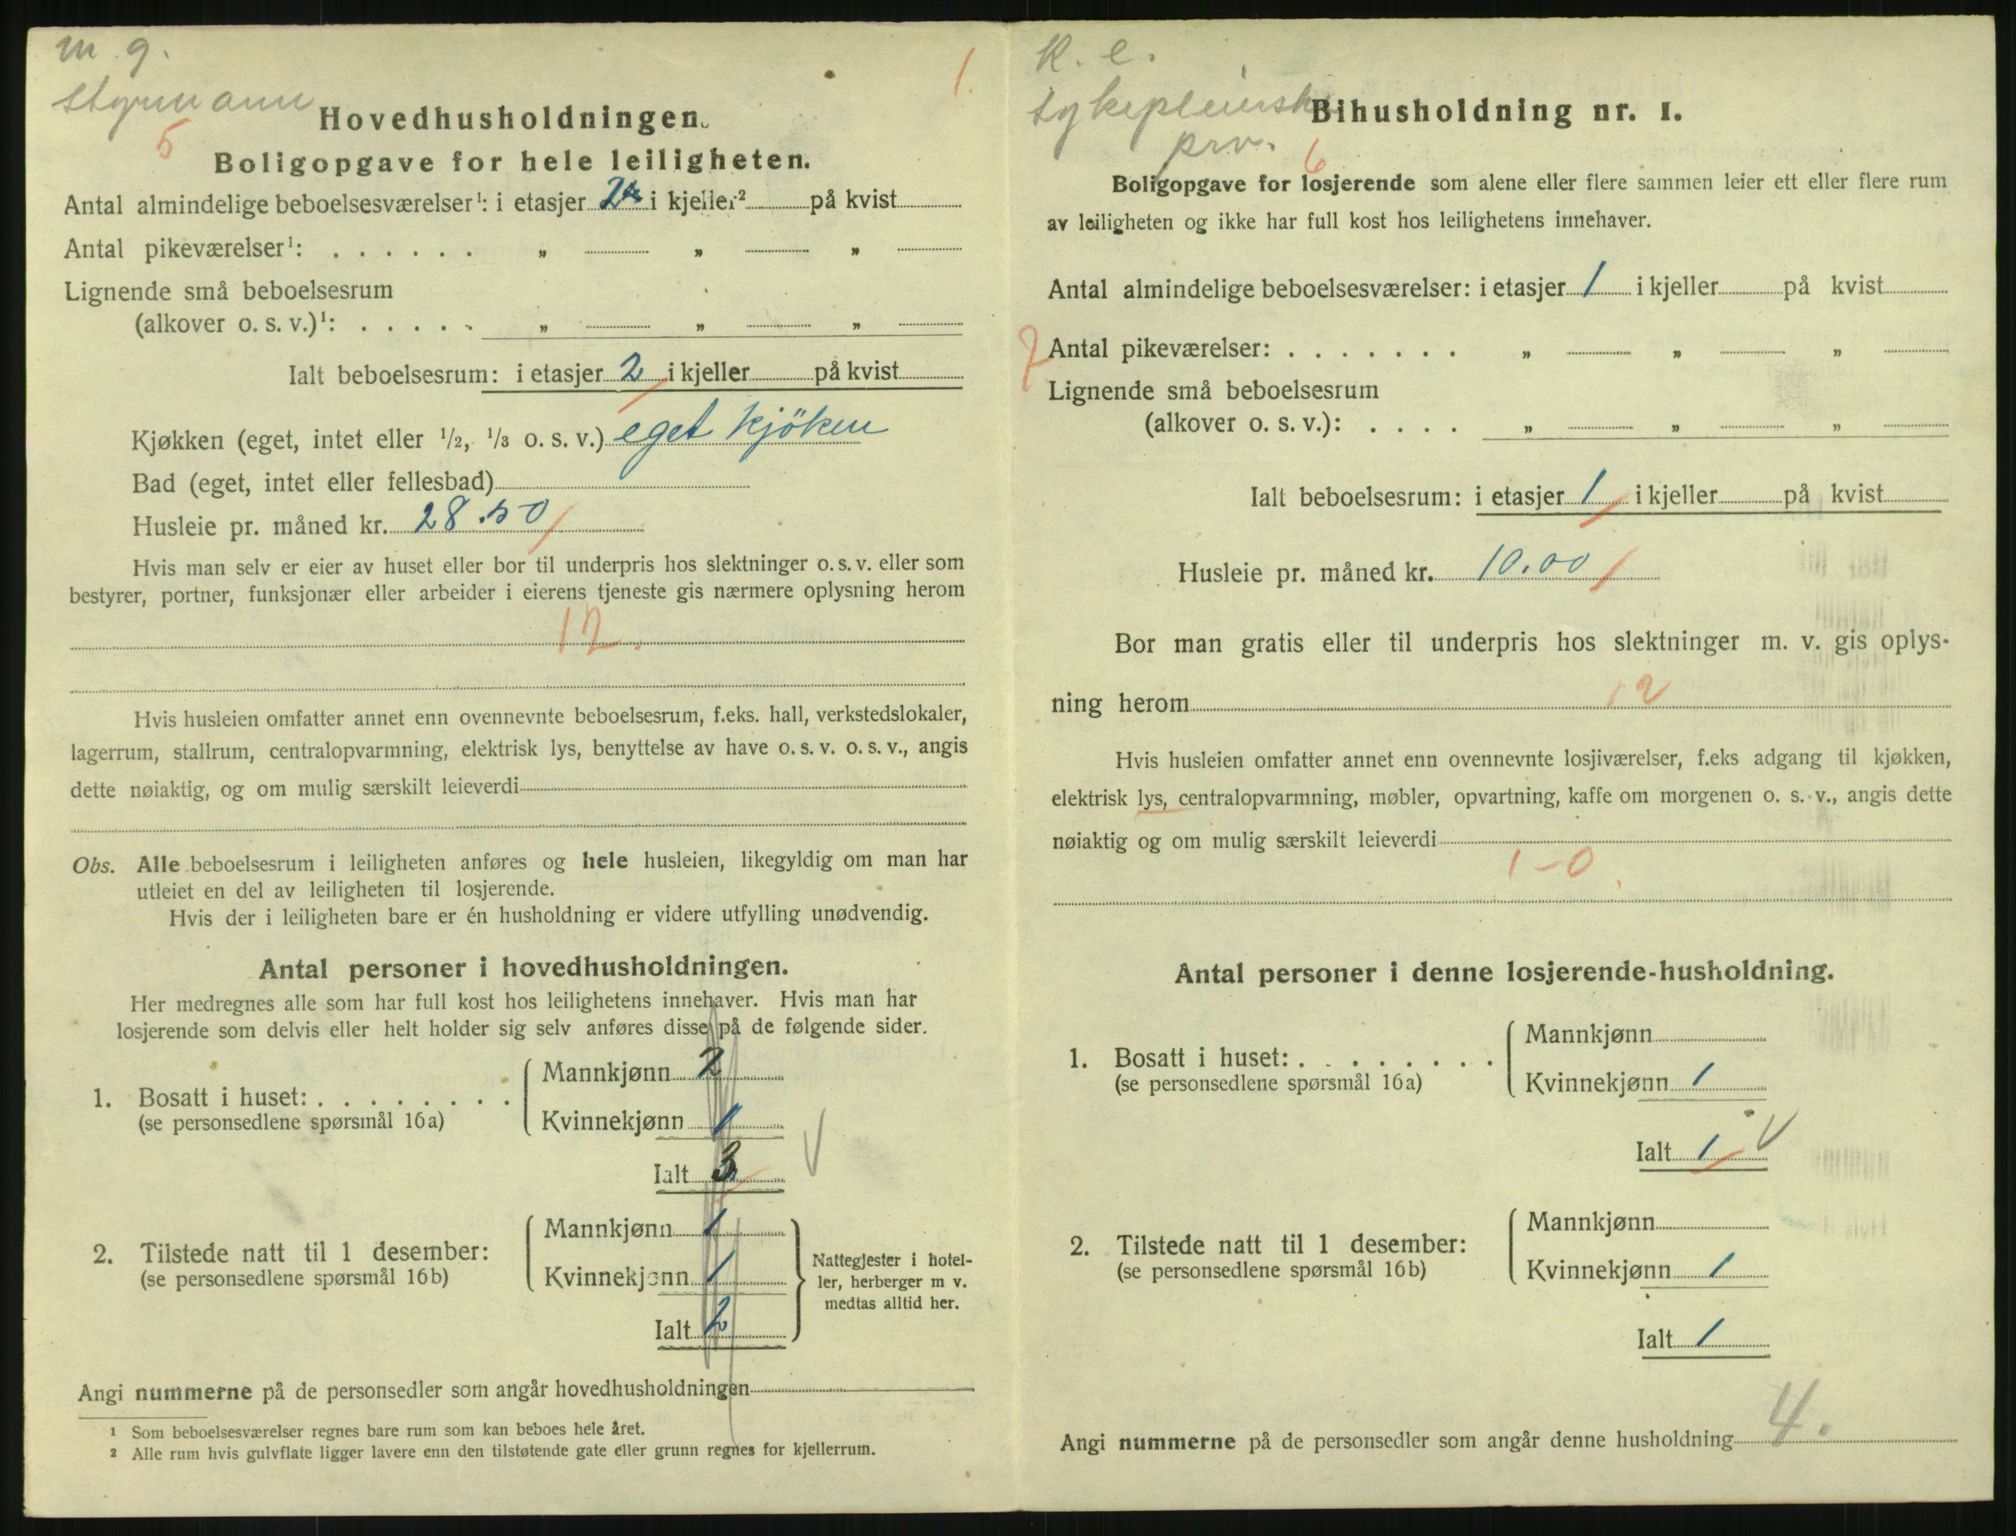 m. g.
styrmann
1.
5
Hovedhusholdningen.
Boligopgave for hele leiligheten.
Antal almindelige beboelsesværelser¹: i etasjer 2 i kjeller² på kvist
Antal pikeværelser¹: . . . . . . „ „ „
Lignende små beboelsesrum
(alkover o. s. v.)¹: . . . . . „ „ „
Ialt beboelsesrum: i etasjer 2 i kjeller på kvist
Kjøkken (eget, intet eller 1/2, 1/3 o. s. v.) eget kjöken
Bad (eget, intet eller fellesbad)
Husleie pr. måned kr. 28.50
Hvis man selv er eier av huset eller bor til underpris hos slektninger o. s. v. eller som
bestyrer, portner, funksjonær eller arbeider i eierens tjeneste gis nærmere oplysning herom
12.
Hvis husleien omfatter annet enn ovennevnte beboelsesrum, f.eks. hall, verkstedslokaler,
lagerrum, stallrum, centralopvarmning, elektrisk lys, benyttelse av have o. s. v. o. s. v., angis
dette nøiaktig, og om mulig særskilt leieverdi
Obs. Alle beboelsesrum i leiligheten anføres og hele husleien, likegyldig om man har
utleiet en del av leiligheten til losjerende.
Hvis der i leiligheten bare er én husholdning er videre utfylling unødvendig.
Antal personer i hovedhusholdningen.
Her medregnes alle som har full kost hos leilighetens innehaver. Hvis man har
losjerende som delvis eller helt holder sig selv anføres disse på de følgende sider.
1. Bosatt i huset: . . . . . . . .
(se personsedlene spørsmål 16a)
Mannkjønn 2
Kvinnekjønn 1
Ialt 3
2. Tilstede natt til 1 desember:
(se personsedlene spørsmål 16b)
Mannkjønn 1
Kvinnekjønn 1
Ialt 2
Nattegjester i hotel-
ler, herberger m v.
medtas alltid her.
Angi nummerne på de personsedler som angår hovedhusholdningen
¹ Som beboelsesværelser regnes bare rum som kan beboes hele året.
² Alle rum hvis gulvflate ligger lavere enn den tilstøtende gate eller grunn regnes for kjellerrum.
K. e.
sykepleierske
prv.
6
Bihusholdning nr. 1.
Boligopgave for losjerende som alene eller flere sammen leier ett eller flere rum
av leiligheten og ikke har full kost hos leilighetens innehaver.
Antal almindelige beboelsesværelser: i etasjer 1 i kjeller på kvist
7
Antal pikeværelser: . . . . . . . „ „ „
Lignende små beboelsesrum
(alkover o. s. v.): . . . . „ „ „
Ialt beboelsesrum: i etasjer 1 i kjeller på kvist
Husleie pr. måned kr. 10.00
Bor man gratis eller til underpris hos slektninger m. v. gis oplys-
ning herom 12
Hvis husleien omfatter annet enn ovennevnte losjiværelser, f.eks adgang til kjøkken,
elektrisk lys, centralopvarmning, møbler, opvartning, kaffe om morgenen o. s. v., angis dette
nøiaktig og om mulig særskilt leieverdi
1-0
Antal personer i denne losjerende-husholdning.
1. Bosatt i huset: . . . . . . . .
(se personsedlene spørsmål 16a)
Mannkjønn
Kvinnekjønn 1
Ialt 1
2. Tilstede natt til 1 desember:
(se personsedlene spørsmål 16b)
Mannkjønn
Kvinnekjønn 1
Ialt 1
Angi nummerne på de personsedler som angår denne husholdning 4.